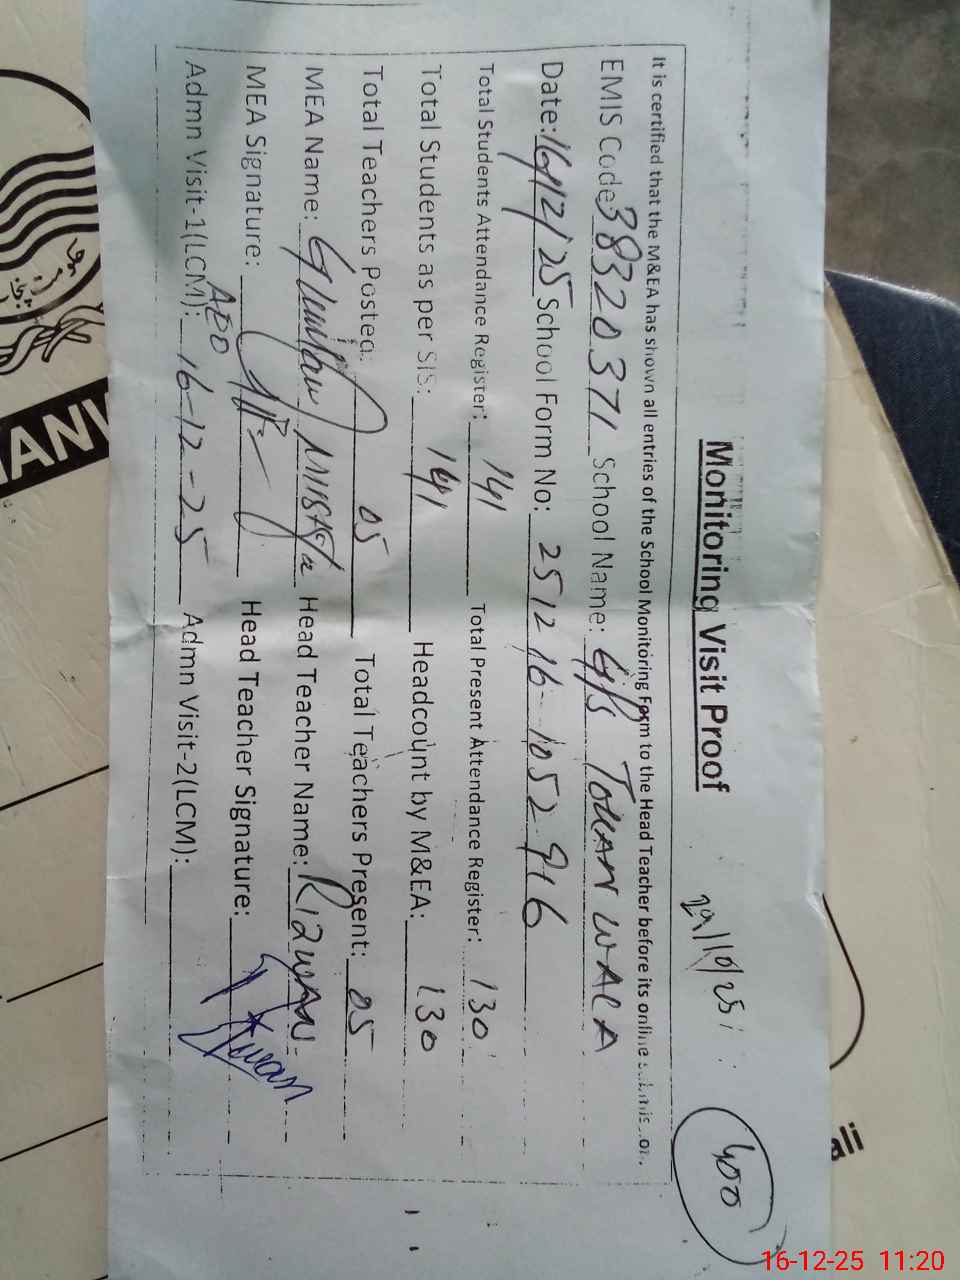 Monitoring Visit Proof
29/10/25
400
It is certified that the M&EA has shown all entries of the School Monitoring Form to the Head Teacher before its online submission.
EMIS Code 38320371 School Name: G/s TOHAN WALA
Date: 16/12/25 School Form No: 251216-1052916
Total Students Attendance Register: 141 Total Present Attendance Register: 130
Total Students as per SIS: 141 Headcount by M&EA: 130
Total Teachers Posted: 05 Total Teachers Present: 05
MEA Name: Ghulam Mustafa Head Teacher Name: Rizwan
MEA Signature: Head Teacher Signature: Rizwan
AEO
Admn Visit-1(LCM): 16-12-25 Admn Visit-2(LCM):
ali
16-12-25 11:20